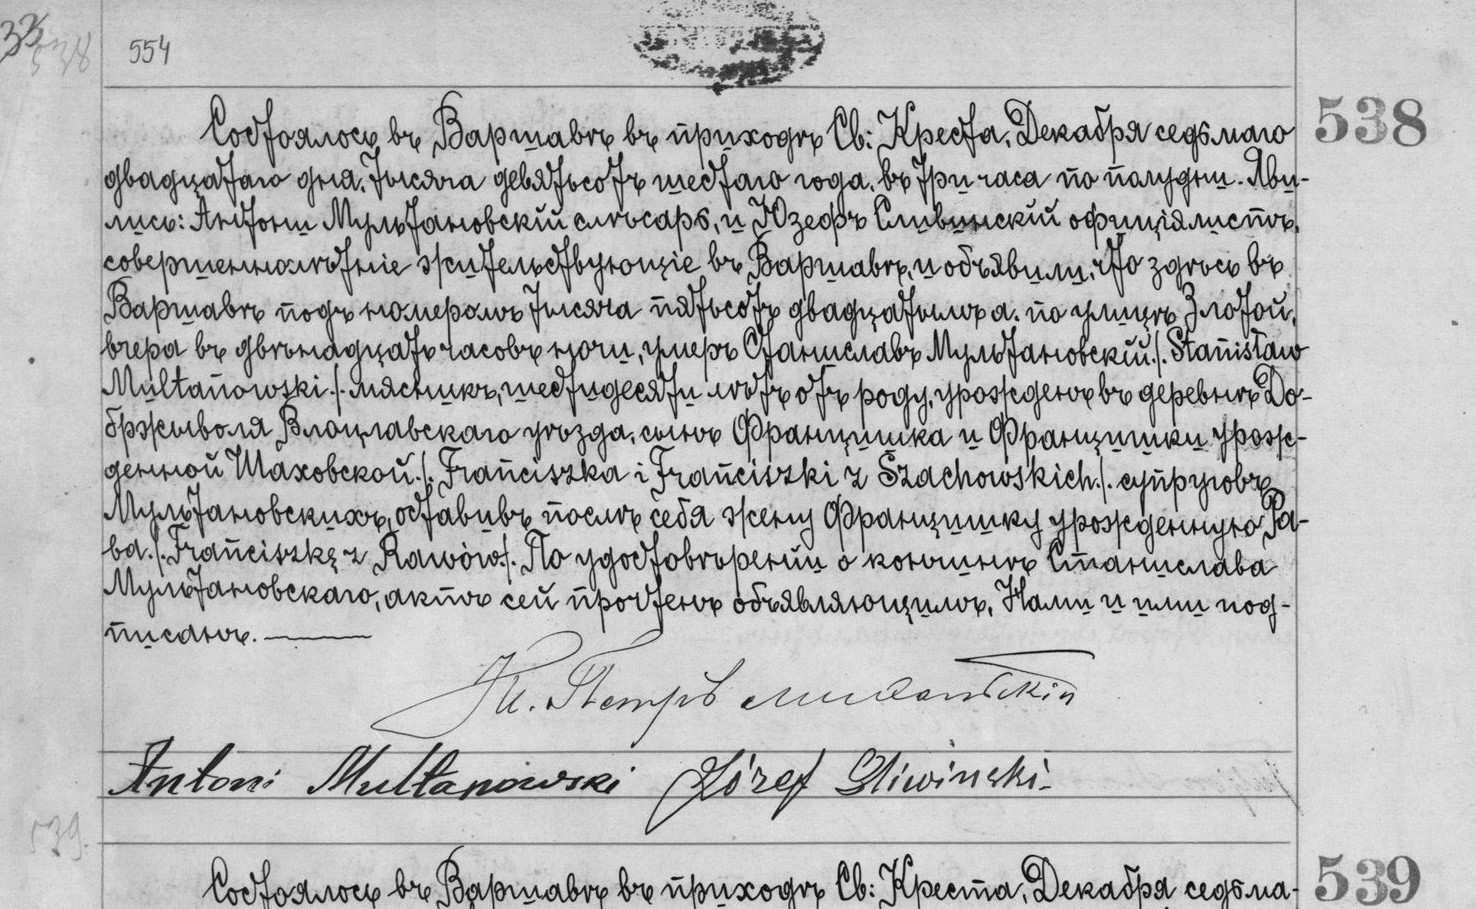 554
538
Состоялось въ Варшавѣ въ приходѣ Св: Креста, Декабря седьмаго
двадцатаго дня, тысяча девятьсотъ шестаго года, въ три часа по полудни. Яви-
лись: Антони Мультановскій слѣсарь, и Юзефъ Сливинскій офиціялистъ,
совершеннолѣтніе жительствующіе въ Варшавѣ, и объявили, что здѣсь въ
Варшавѣ подъ номеромъ тысяча пятьсотъ двадцатымъ а. по улицѣ Злотой,
вчера въ двѣнадцать часовъ ночи, умеръ Станиславъ Мультановскій /. Stanisław
Multanowski ./. мясникъ, шестидесяти лѣтъ отъ роду, урожденъ въ деревнѣ До-
бржыволя Влоцлавскаго уѣзда, сынъ Францишка и Францишки урож-
денной Шаховской ./. Franciszka i Franciszki z Szachowskich ./. супруговъ
Мультановскихъ, оставивъ послѣ себя жену Францишку урожденную Ра-
ва ./. Franciszkę z Rawów ./. По удостовѣреніи о кончинѣ Станислава
Мультановскаго, актъ сей прочтенъ объявляющимъ, Нами и ими под-
писанъ.
Кс. Петръ
Antoni Multanowski Józef Sliwinski
539.
Состоялось въ Варшавѣ въ приходѣ Св: Креста, Декабря седьма-
539